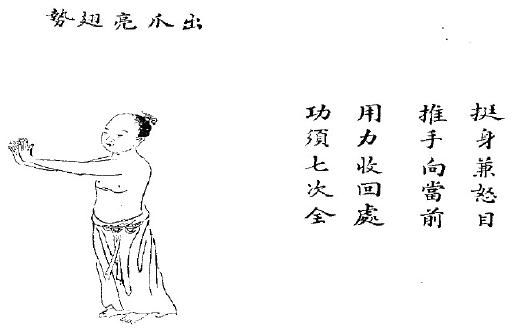 出爪亮翅勢
挺身兼怒目
推手向當前
用力收回處
功須七次全